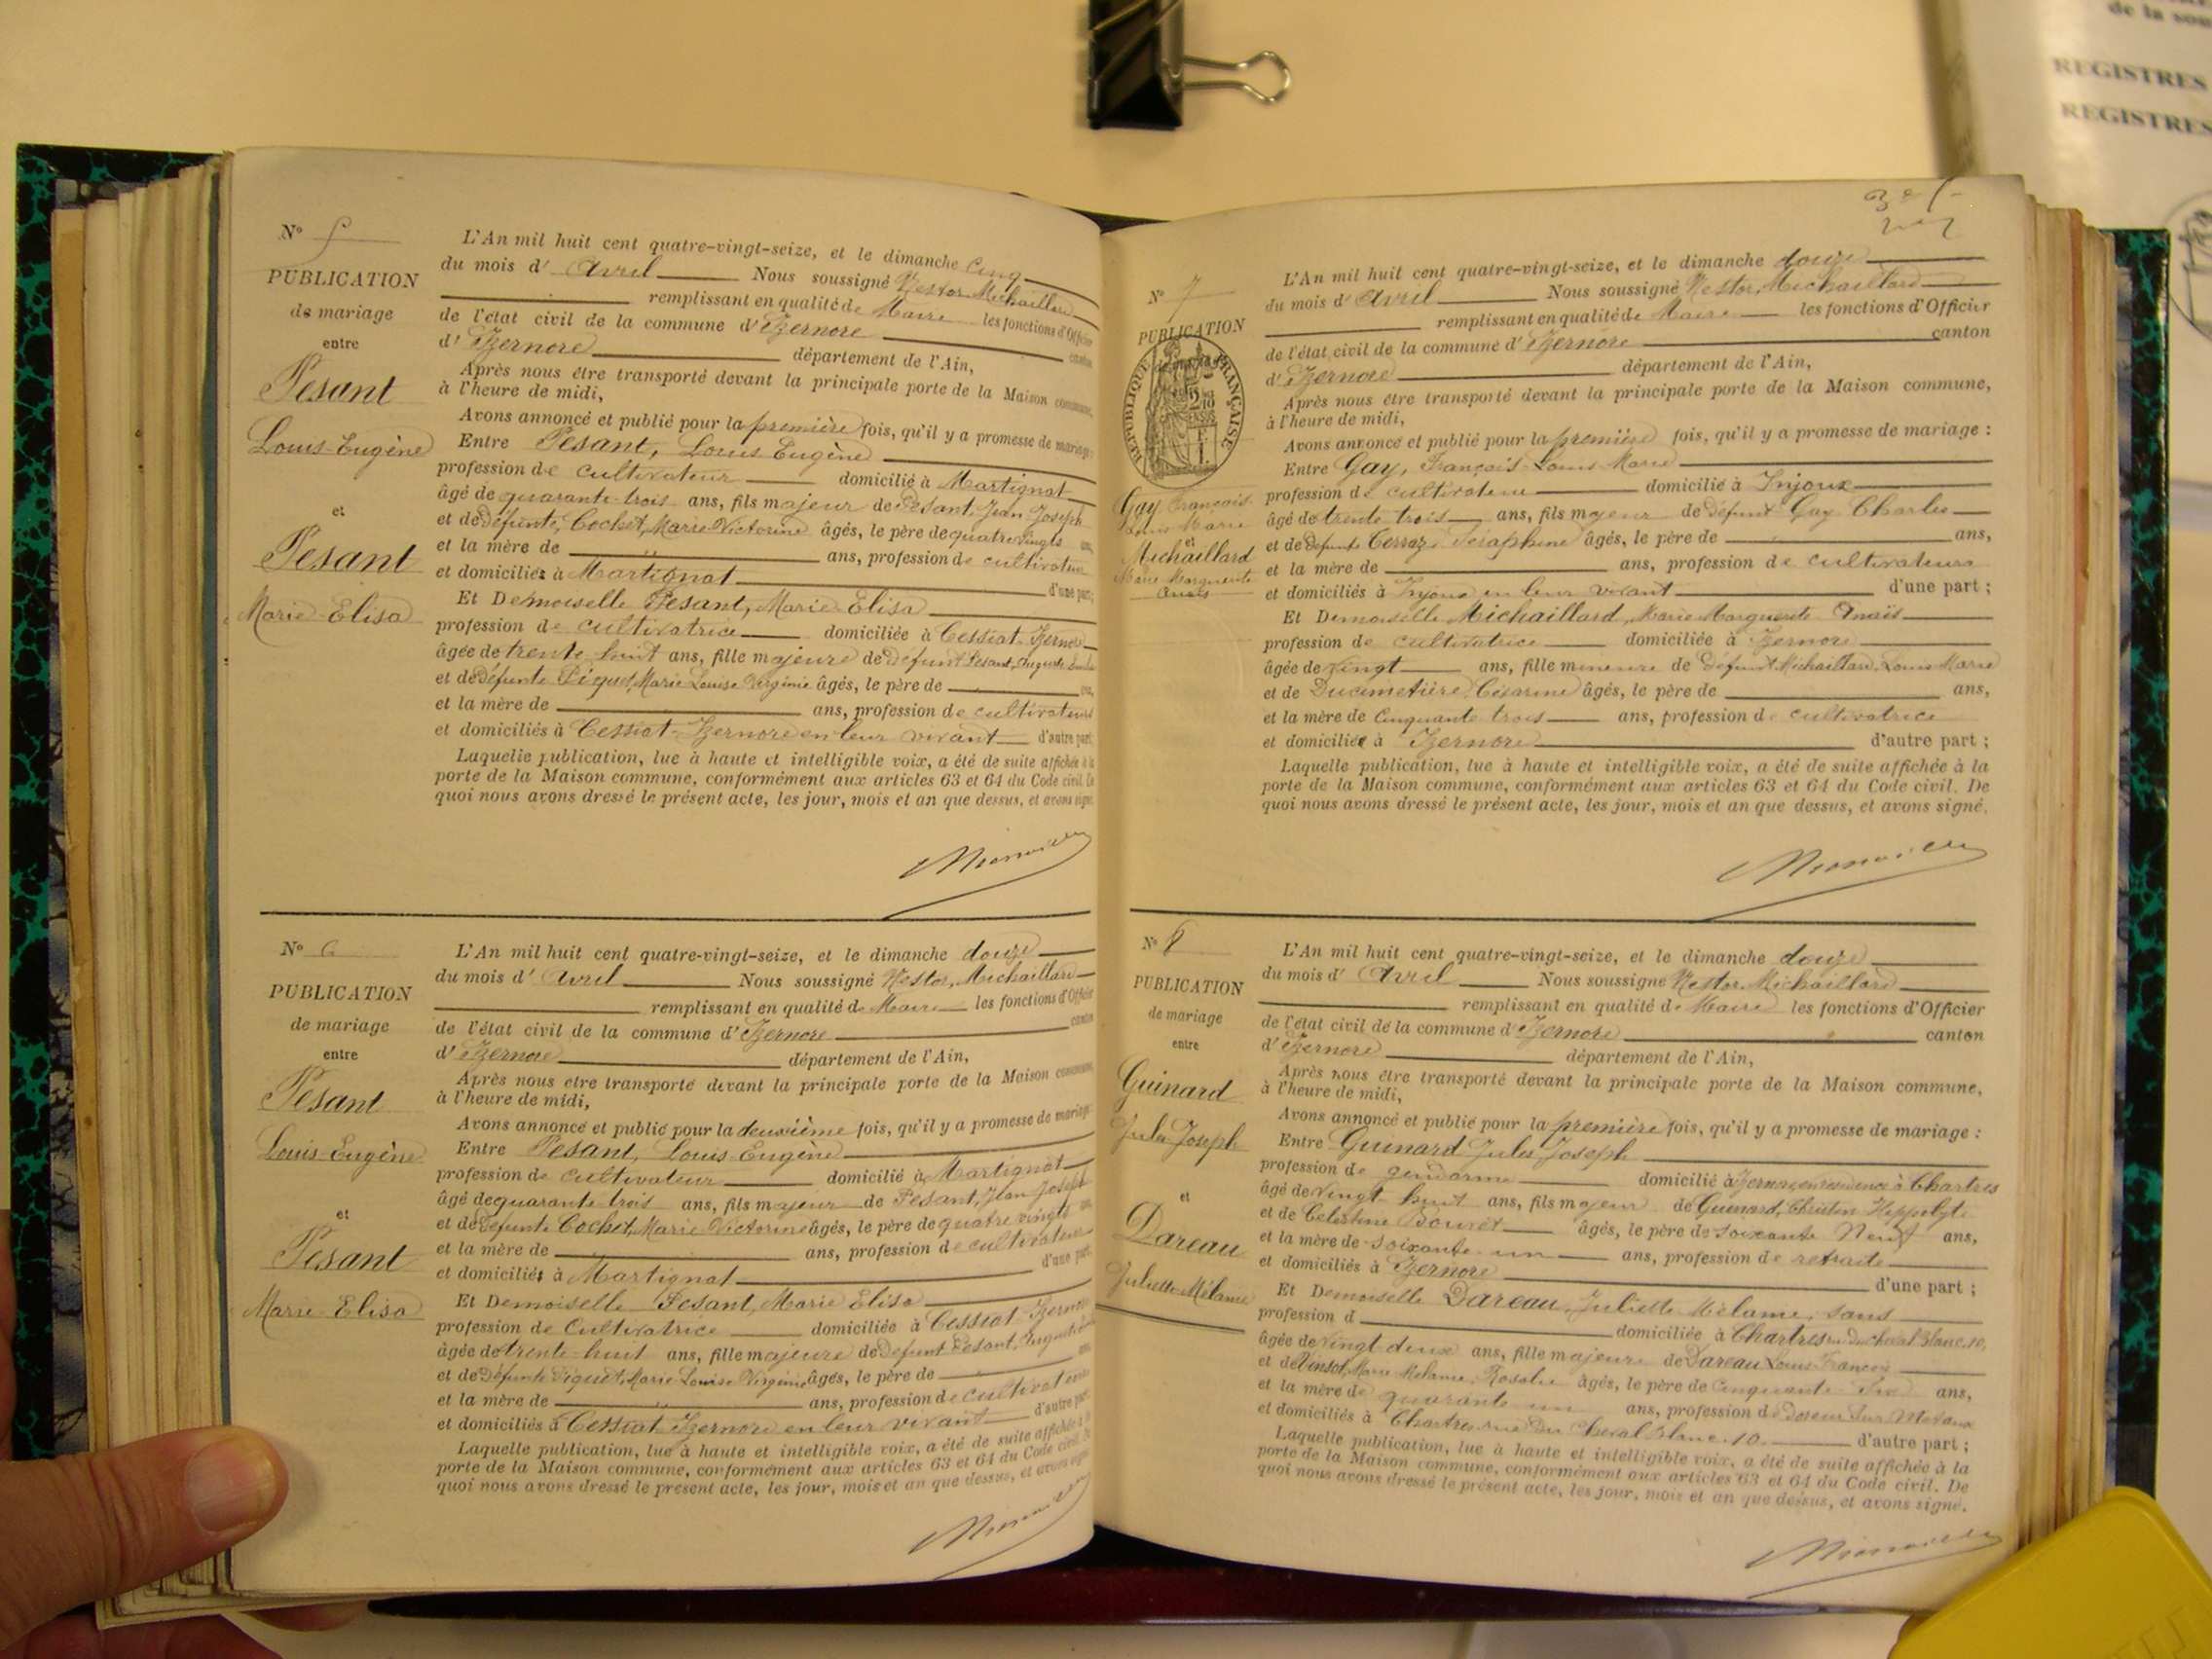 N° 5
PUBLICATION
de mariage
entre
Pesant
Louis-Eugène
et
Pesant
Marie-Elisa
L'An mil huit cent quatre-vingt-seize, et le dimanche Cinq
du mois d' Avril Nous soussigné Nestor Michaillard
remplissant en qualité de Maire les fonctions d'Officier
de l'état civil de la commune d'Izernore canton
d'Izernore département de l'Ain,
Après nous être transporté devant la principale porte de la Maison commune,
à l'heure de midi,
Avons annoncé et publié pour la première fois, qu'il y a promesse de mariage:
Entre Pesant, Louis Eugène
profession de cultivateur domicilié à Martignat
âgé de quarante-trois ans, fils majeur de Pesant, Jean Joseph
et de défunte Cochet, Marie Victorine âgés, le père de quatre vingts ans,
et la mère de ans, profession de cultivateur
et domiciliés à Martignat d'une part;
Et Demoiselle Pesant, Marie Elisa
profession de cultivatrice domiciliée à Cessiat-Izernore
âgée de trente huit ans, fille majeure de défunt Pesant,
et de défunte Piquet, Marie Louise Virginie âgés, le père de ans,
et la mère de ans, profession de cultivateurs
et domiciliés à Cessiat-Izernore en leur vivant d'autre part
Laquelle publication, lue à haute et intelligible voix, a été de suite affichée à la
porte de la Maison commune, conformément aux articles 63 et 64 du Code civil. De
quoi nous avons dressé le présent acte, les jour, mois et an que dessus, et avons signé.
N° 6
PUBLICATION
de mariage
entre
Pesant
Louis-Eugène
et
Pesant
Marie Elisa
L'An mil huit cent quatre-vingt-seize, et le dimanche douze
du mois d' Avril Nous soussigné Nestor, Michaillard
remplissant en qualité de Maire les fonctions d'Officier
de l'état civil de la commune d'Izernore canton
d'Izernore département de l'Ain,
Après nous être transporté devant la principale porte de la Maison commune,
à l'heure de midi,
Avons annoncé et publié pour la deuxième fois, qu'il y a promesse de mariage:
Entre Pesant, Louis-Eugène
profession de cultivateur domicilié à Martignat
âgé de quarante trois ans, fils majeur de Pesant, Jean Joseph
et de défunte Cochet, Marie Victorine âgés, le père de quatre vingts ans
et la mère de ans, profession de cultivateur
et domiciliés à Martignat d'une part
Et Demoiselle Pesant, Marie Elisa
profession de Cultivatrice domiciliée à Cessiat Izernore
âgée de trente-huit ans, fille majeure de défunt Pesant,
et de défunte Piquet, Marie Louise Virginie âgés, le père de ans
et la mère de ans, profession de cultivateurs
et domiciliés à Cessiat Izernore en leur vivant d'autre part
Laquelle publication, lue à haute et intelligible voix, a été de suite affichée à la
porte de la Maison commune, conformément aux articles 63 et 64 du Code civil. De
quoi nous avons dressé le présent acte, les jour, mois et an que dessus, et avons signé
N° 7
PUBLICATION
RÉPUBLIQUE FRANÇAISE
Gay François
Louis Marie
et
Michaillard
Marie Marguerite
Anaïs
L'An mil huit cent quatre-vingt-seize, et le dimanche douze
du mois d' Avril Nous soussigné Nestor, Michaillard
remplissant en qualité de Maire les fonctions d'Officier
de l'état civil de la commune d'Izernore canton
d'Izernore département de l'Ain,
Après nous être transporté devant la principale porte de la Maison commune,
à l'heure de midi,
Avons annoncé et publié pour la première fois, qu'il y a promesse de mariage :
Entre Gay, François Louis Marie
profession de cultivateur domicilié à Injoux
âgé de trente trois ans, fils majeur de défunt Gay Charles
et de défunte Cerraz, Séraphine âgés, le père de ans,
et la mère de ans, profession de cultivateurs
et domiciliés à Injoux en leur vivant d'une part ;
Et Demoiselle Michaillard, Marie Marguerite Anaïs
profession de cultivatrice domiciliée à Izernore
âgée de vingt ans, fille mineure de défunt Michaillard, Louis Marie
et de Ducimetière, Césarine âgés, le père de ans,
et la mère de Cinquante trois ans, profession de cultivatrice
et domiciliée à Izernore d'autre part ;
Laquelle publication, lue à haute et intelligible voix, a été de suite affichée à la
porte de la Maison commune, conformément aux articles 63 et 64 du Code civil. De
quoi nous avons dressé le présent acte, les jour, mois et an que dessus, et avons signé.
N° 8
PUBLICATION
de mariage
entre
Guinard
Jules Joseph
et
Dareau
Juliette-Mélanie
L'An mil huit cent quatre-vingt-seize, et le dimanche douze
du mois d' Avril Nous soussigné Nestor Michaillard
remplissant en qualité de Maire les fonctions d'Officier
de l'état civil de la commune d'Izernore canton
d'Izernore département de l'Ain,
Après nous être transporté devant la principale porte de la Maison commune,
à l'heure de midi,
Avons annoncé et publié pour la première fois, qu'il y a promesse de mariage :
Entre Guinard Jules Joseph
profession de gendarme domicilié à Izernore en résidence à Chartres
âgé de vingt huit ans, fils majeur de Guinard, Hippolyte
et de Célestine Bouvet âgés, le père de soixante Neuf ans,
et la mère de soixante un ans, profession de retraité
et domiciliés à Izernore d'une part ;
Et Demoiselle Dareau, Juliette Mélanie, sans
profession d domiciliée à Chartres rue du Cheval Blanc, 10,
âgée de vingt deux ans, fille majeure de Dareau Louis François
et de Vinsot, Marie Mélanie, Rosalie âgés, le père de Cinquante Six ans,
et la mère de quarante un ans, profession de doreur sur Métaux
et domiciliés à Chartres rue du Cheval Blanc. 10. d'autre part ;
Laquelle publication, lue à haute et intelligible voix, a été de suite affichée à la
porte de la Maison commune, conformément aux articles 63 et 64 du Code civil. De
quoi nous avons dressé le présent acte, les jour, mois et an que dessus, et avons signé.
de la sou
REGISTRES
REGISTRES